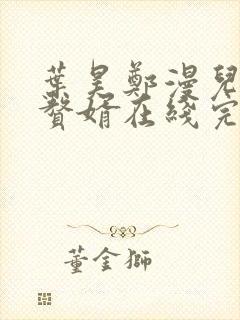 葉昊鄭漫兒
贅婿在綫完
董金獅